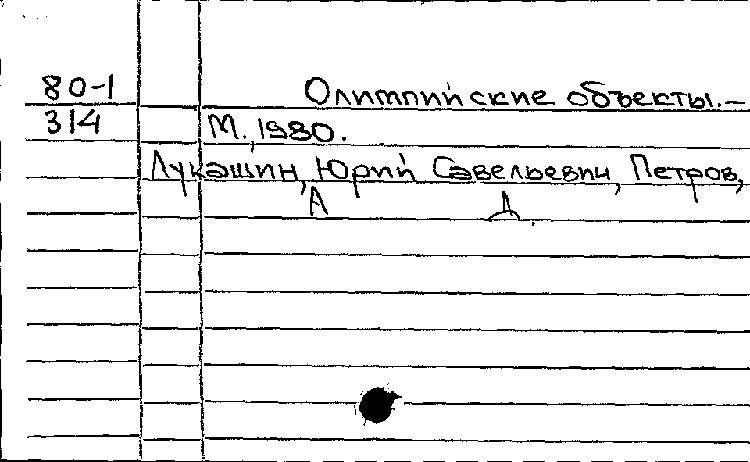 80-1 Олимпийские объекты.–
314 М., 1980.
Лукашин, Юрий Савельевич, Петров,
А Д.